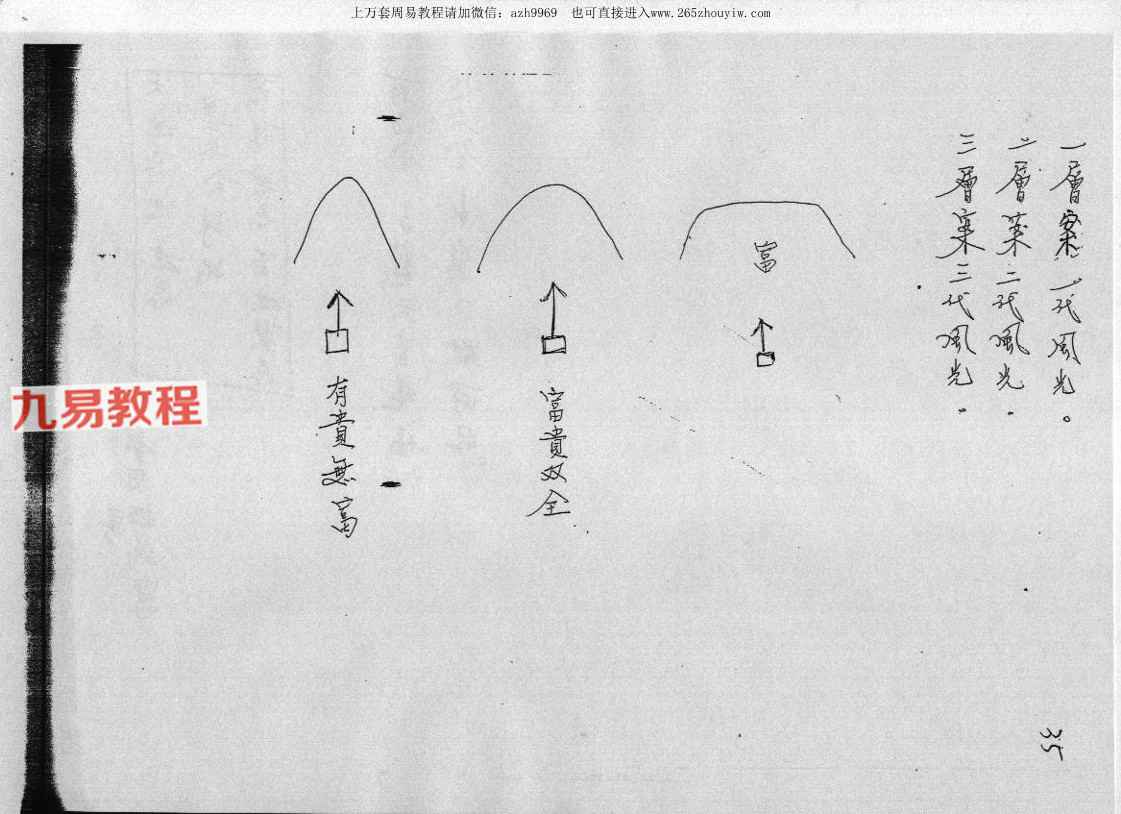 上万套周易教程请加微信：azh9969 也可直接进入www.265zhouyiw.com
一層案一代風光。
二層案二代風光.
三層案三代風光.
富
富貴双全
有貴無富
九易教程
35